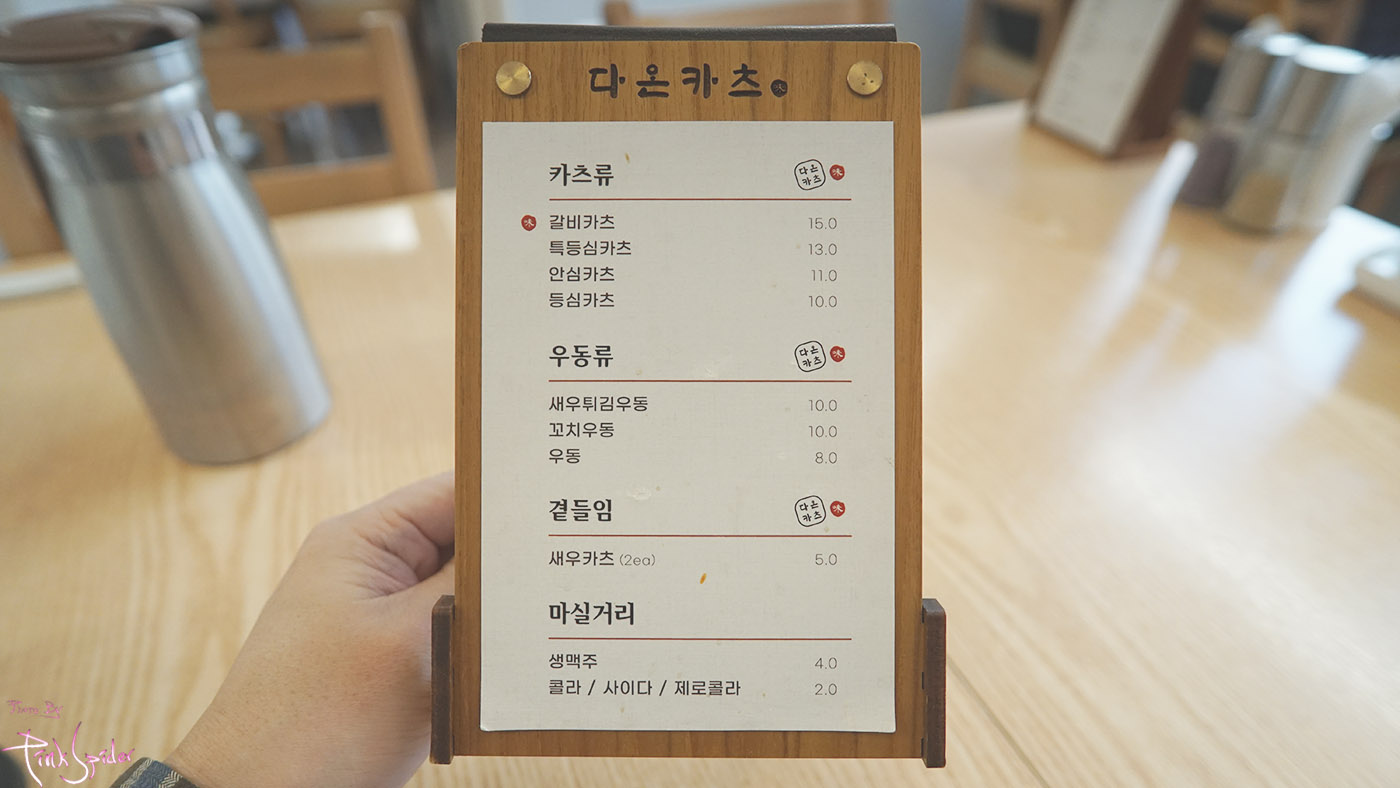 다온카츠味
카츠류 다온카츠 味
味 갈비카츠 15.0
특등심카츠 13.0
안심카츠 11.0
등심카츠 10.0
우동류 다온카츠 味
새우튀김우동 10.0
꼬치우동 10.0
우동 8.0
곁들임 다온카츠 味
새우카츠 (2ea) 5.0
마실거리
생맥주 4.0
콜라 / 사이다 / 제로콜라 2.0
PinkSpider